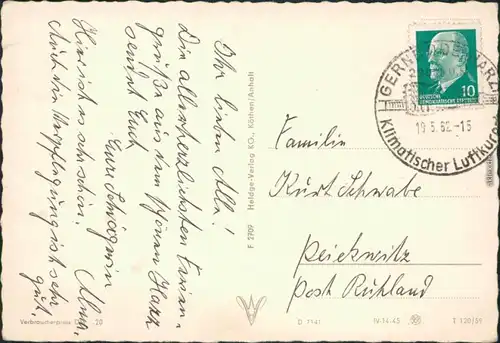 Ihr lieben Alle!
Die allerherzlichsten Ferien-
grüße aus dem schönen Harz
sendet Euch
Eure Schwägerin
Hier ist es sehr schön.
Auch die Verpflegung ist sehr
gut.
Verbraucherpreis 20
F 2709 Heldge-Verlag KG., Köthen/Anhalt
GERNRODE HARZ
19.5.62.-15
Klimatischer Luftkur
10
DEUTSCHE
DEMOKRATISCHE REPUBLIK
Familie
Kurt Schwabe
Peickwitz
Post Ruhland
D 7141
IV-14-45
T 120/59